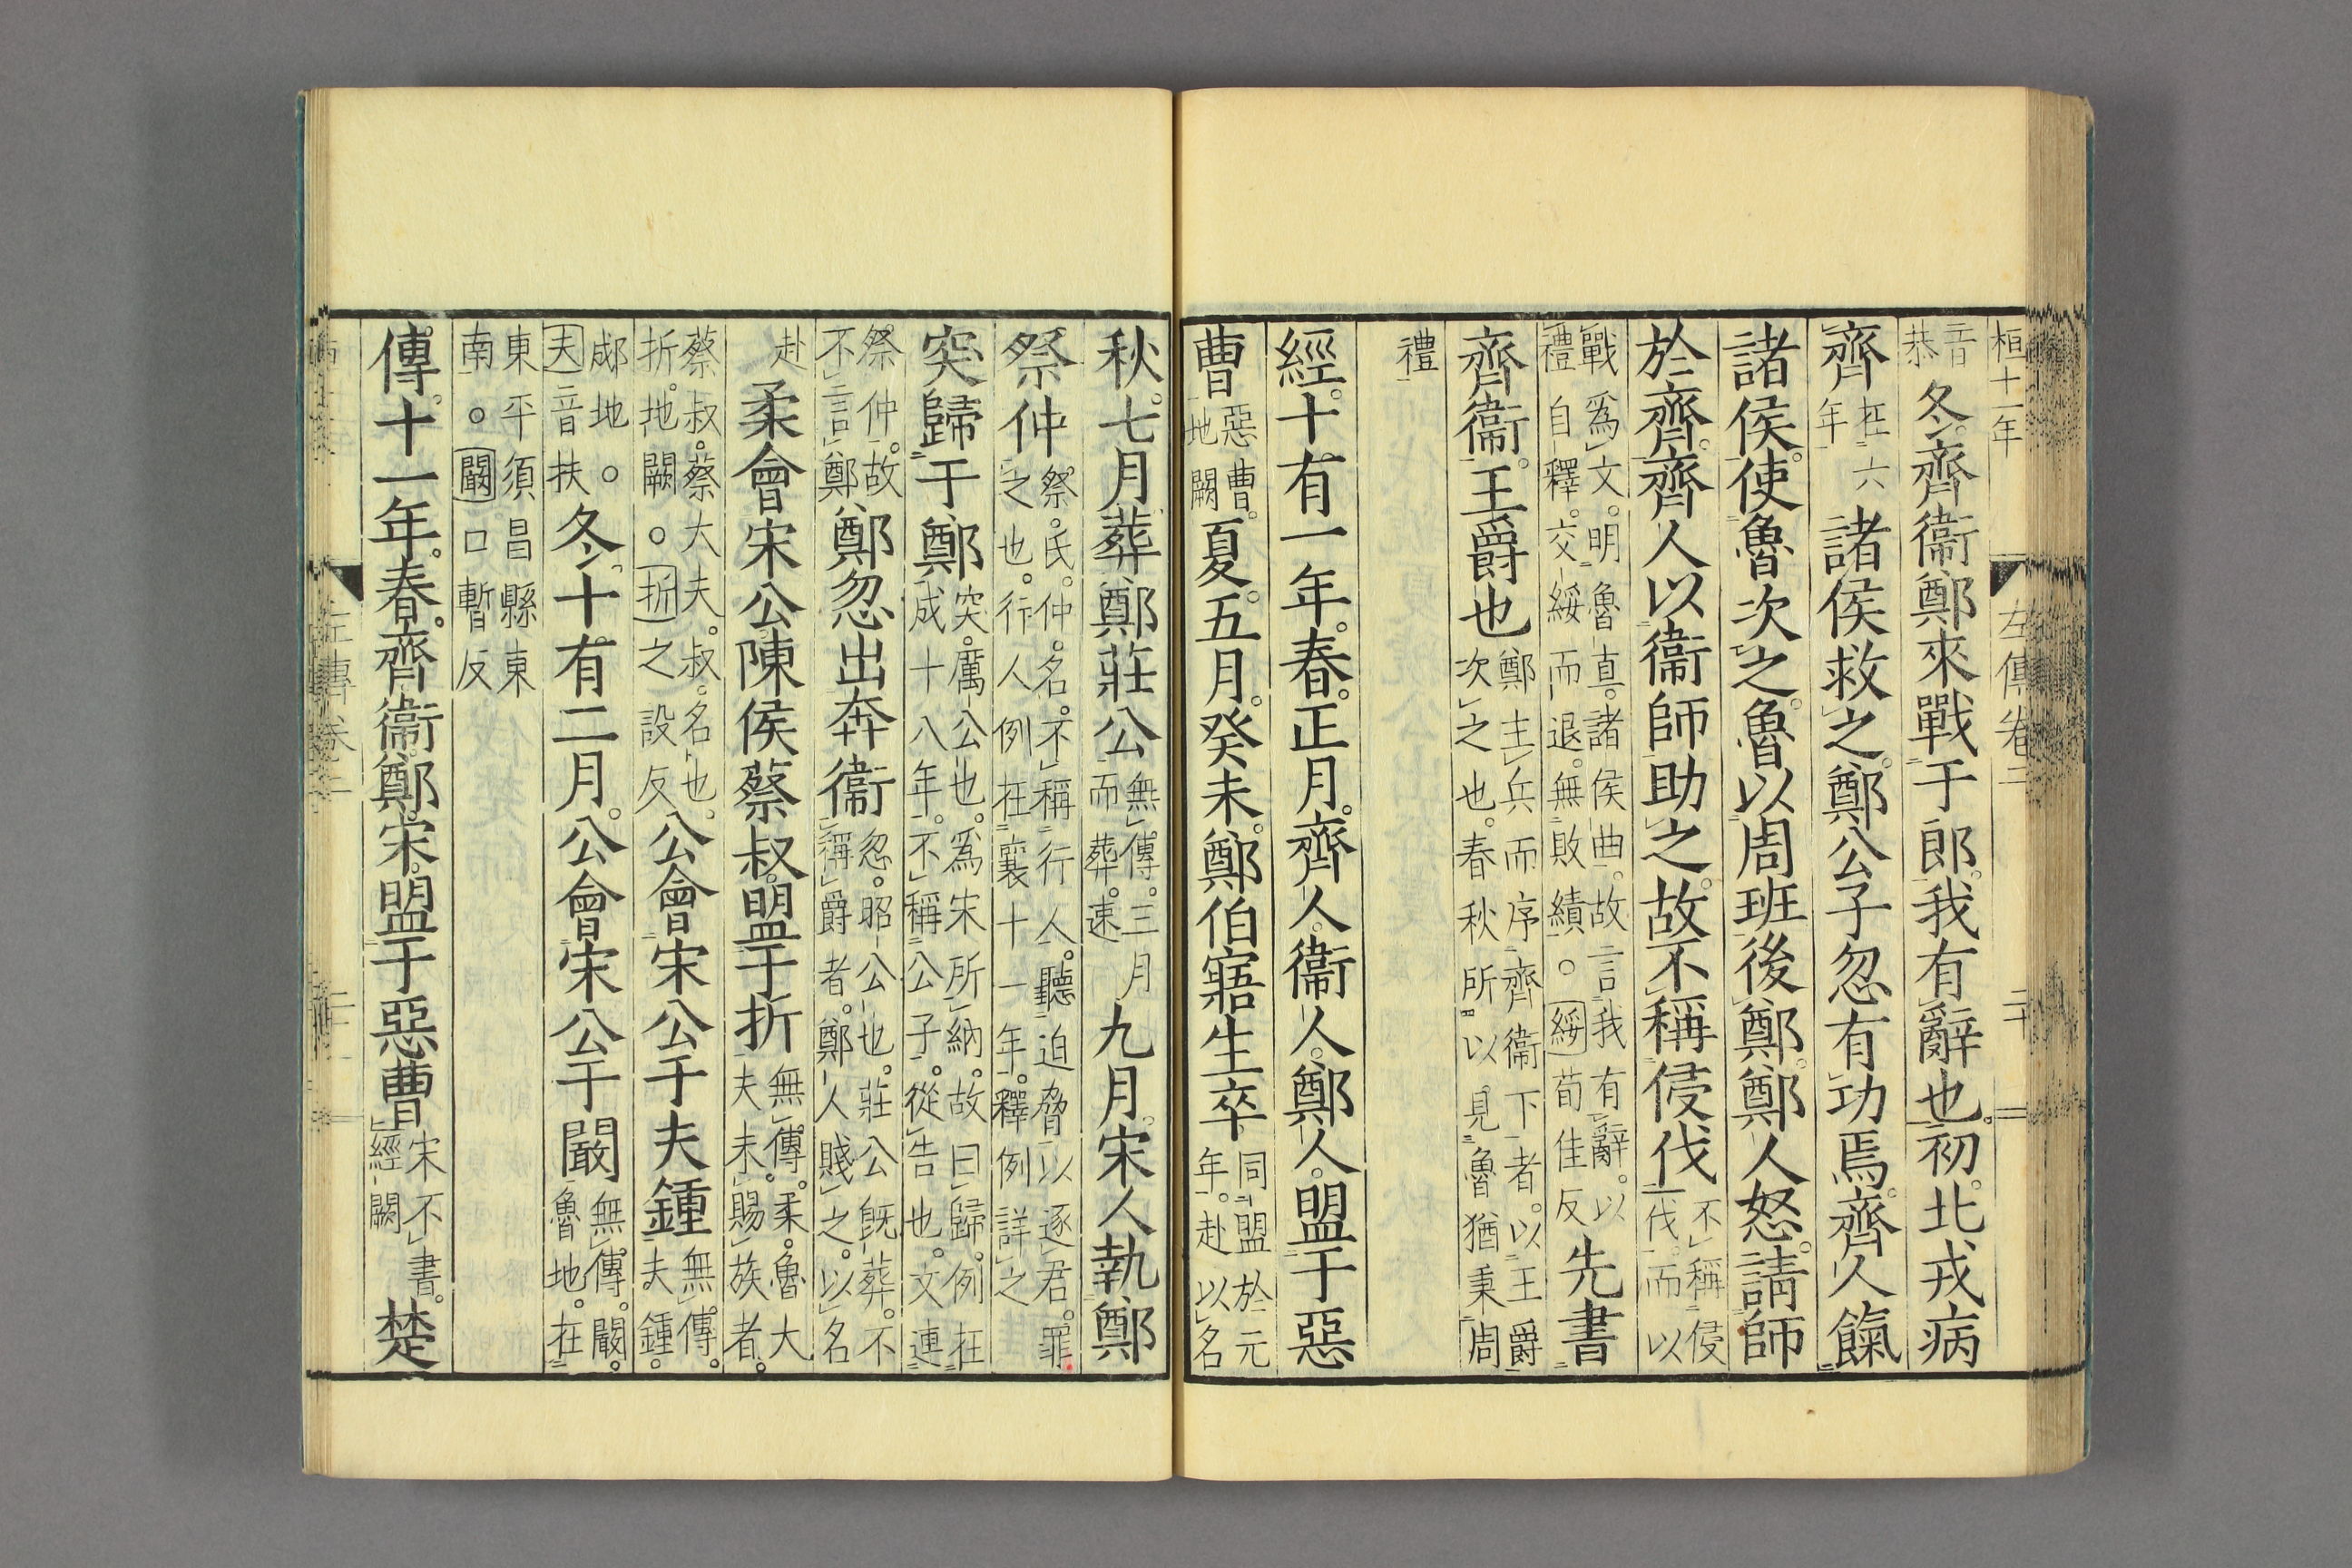 桓十一年
左傳卷二
二十
音恭冬齊衞鄭來戰于郎我有辭也初北戎病
齊在六年諸侯救之鄭公子忽有功焉齊人餼
諸侯使魯次之魯以周班後鄭鄭人怒請師
於齊齊人以衞師助之故不稱侵伐不稱侵伐而以
戰爲文明魯直諸侯曲故言我有辭以禮自釋交綏而退無敗績。綏荀佳反先書
齊衞王爵也鄭主兵而序齊衞下者以王爵次之也春秋所以見魯猶秉周
禮
經十有一年春正月齊人衞人鄭人盟于惡
曹惡曹地闕夏五月癸未鄭伯寤生卒同盟於元年赴以名
秋七月葬鄭莊公無傳三月而葬速九月宋人執鄭
祭仲祭氏仲名不稱行人聽迫脅以逐君罪之也行人例在襄十一年釋例詳之
突歸于鄭突厲公也爲宋所納故曰歸例在成十八年不稱公子從告也文連
祭仲故不言鄭鄭忽出奔衞忽昭公也莊公既葬不稱爵者鄭人賤之以名
赴柔會宋公陳侯蔡叔盟于折無傳柔魯大夫未賜族者
蔡叔蔡大夫叔名也折地闕。折之設反公會宋公于夫鍾無傳夫鍾
郕地。夫音扶冬十有二月公會宋公于闞無傳闞魯地在
東平須昌縣東南。闞口暫反
傳十一年春齊衞鄭宋盟于惡曹宋不書經闕楚